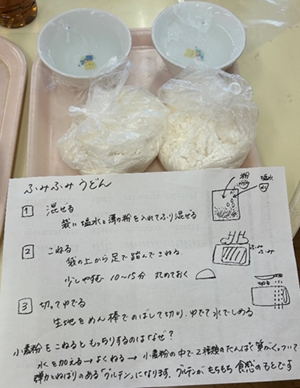 ふみふみうどん
粉 塩水
1 混ぜる
袋に塩水と薄の粉を入れてふり混ぜる
2 こねる
袋の上から足で踏んでこねる
少しやすむ 10〜15分 丸めておく
3 切ってゆでる
生地をめん棒でのばして切り、ゆでて水でしめる
小麦粉をこねるともっちりするのはなぜ?
水を加える→よくねる→小麦粉の中で2種類のたんぱく質がくっついて
弾力とねばりのある「グルテン」になります。グルテンがもちもち食感のもとです